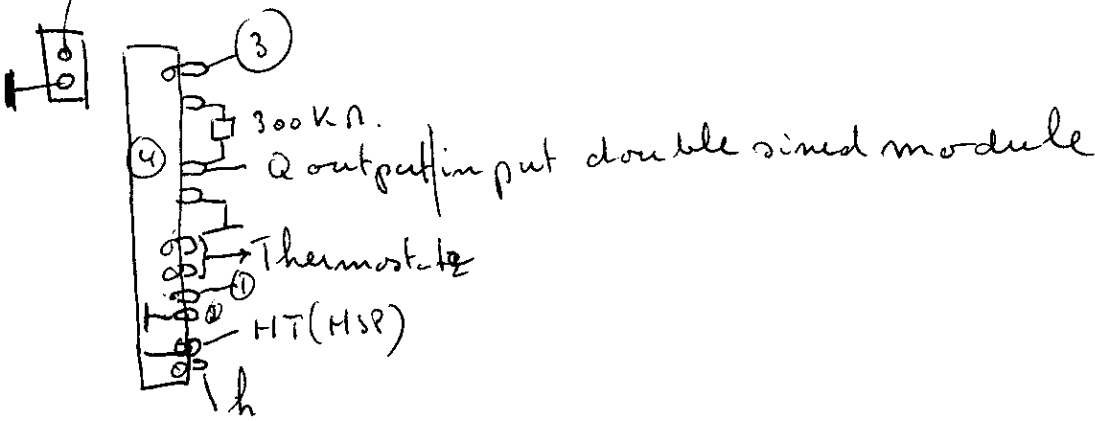 3
300 KΩ.
4
Q output/input double sined module
Thermostate
1
HT (HSP)
h